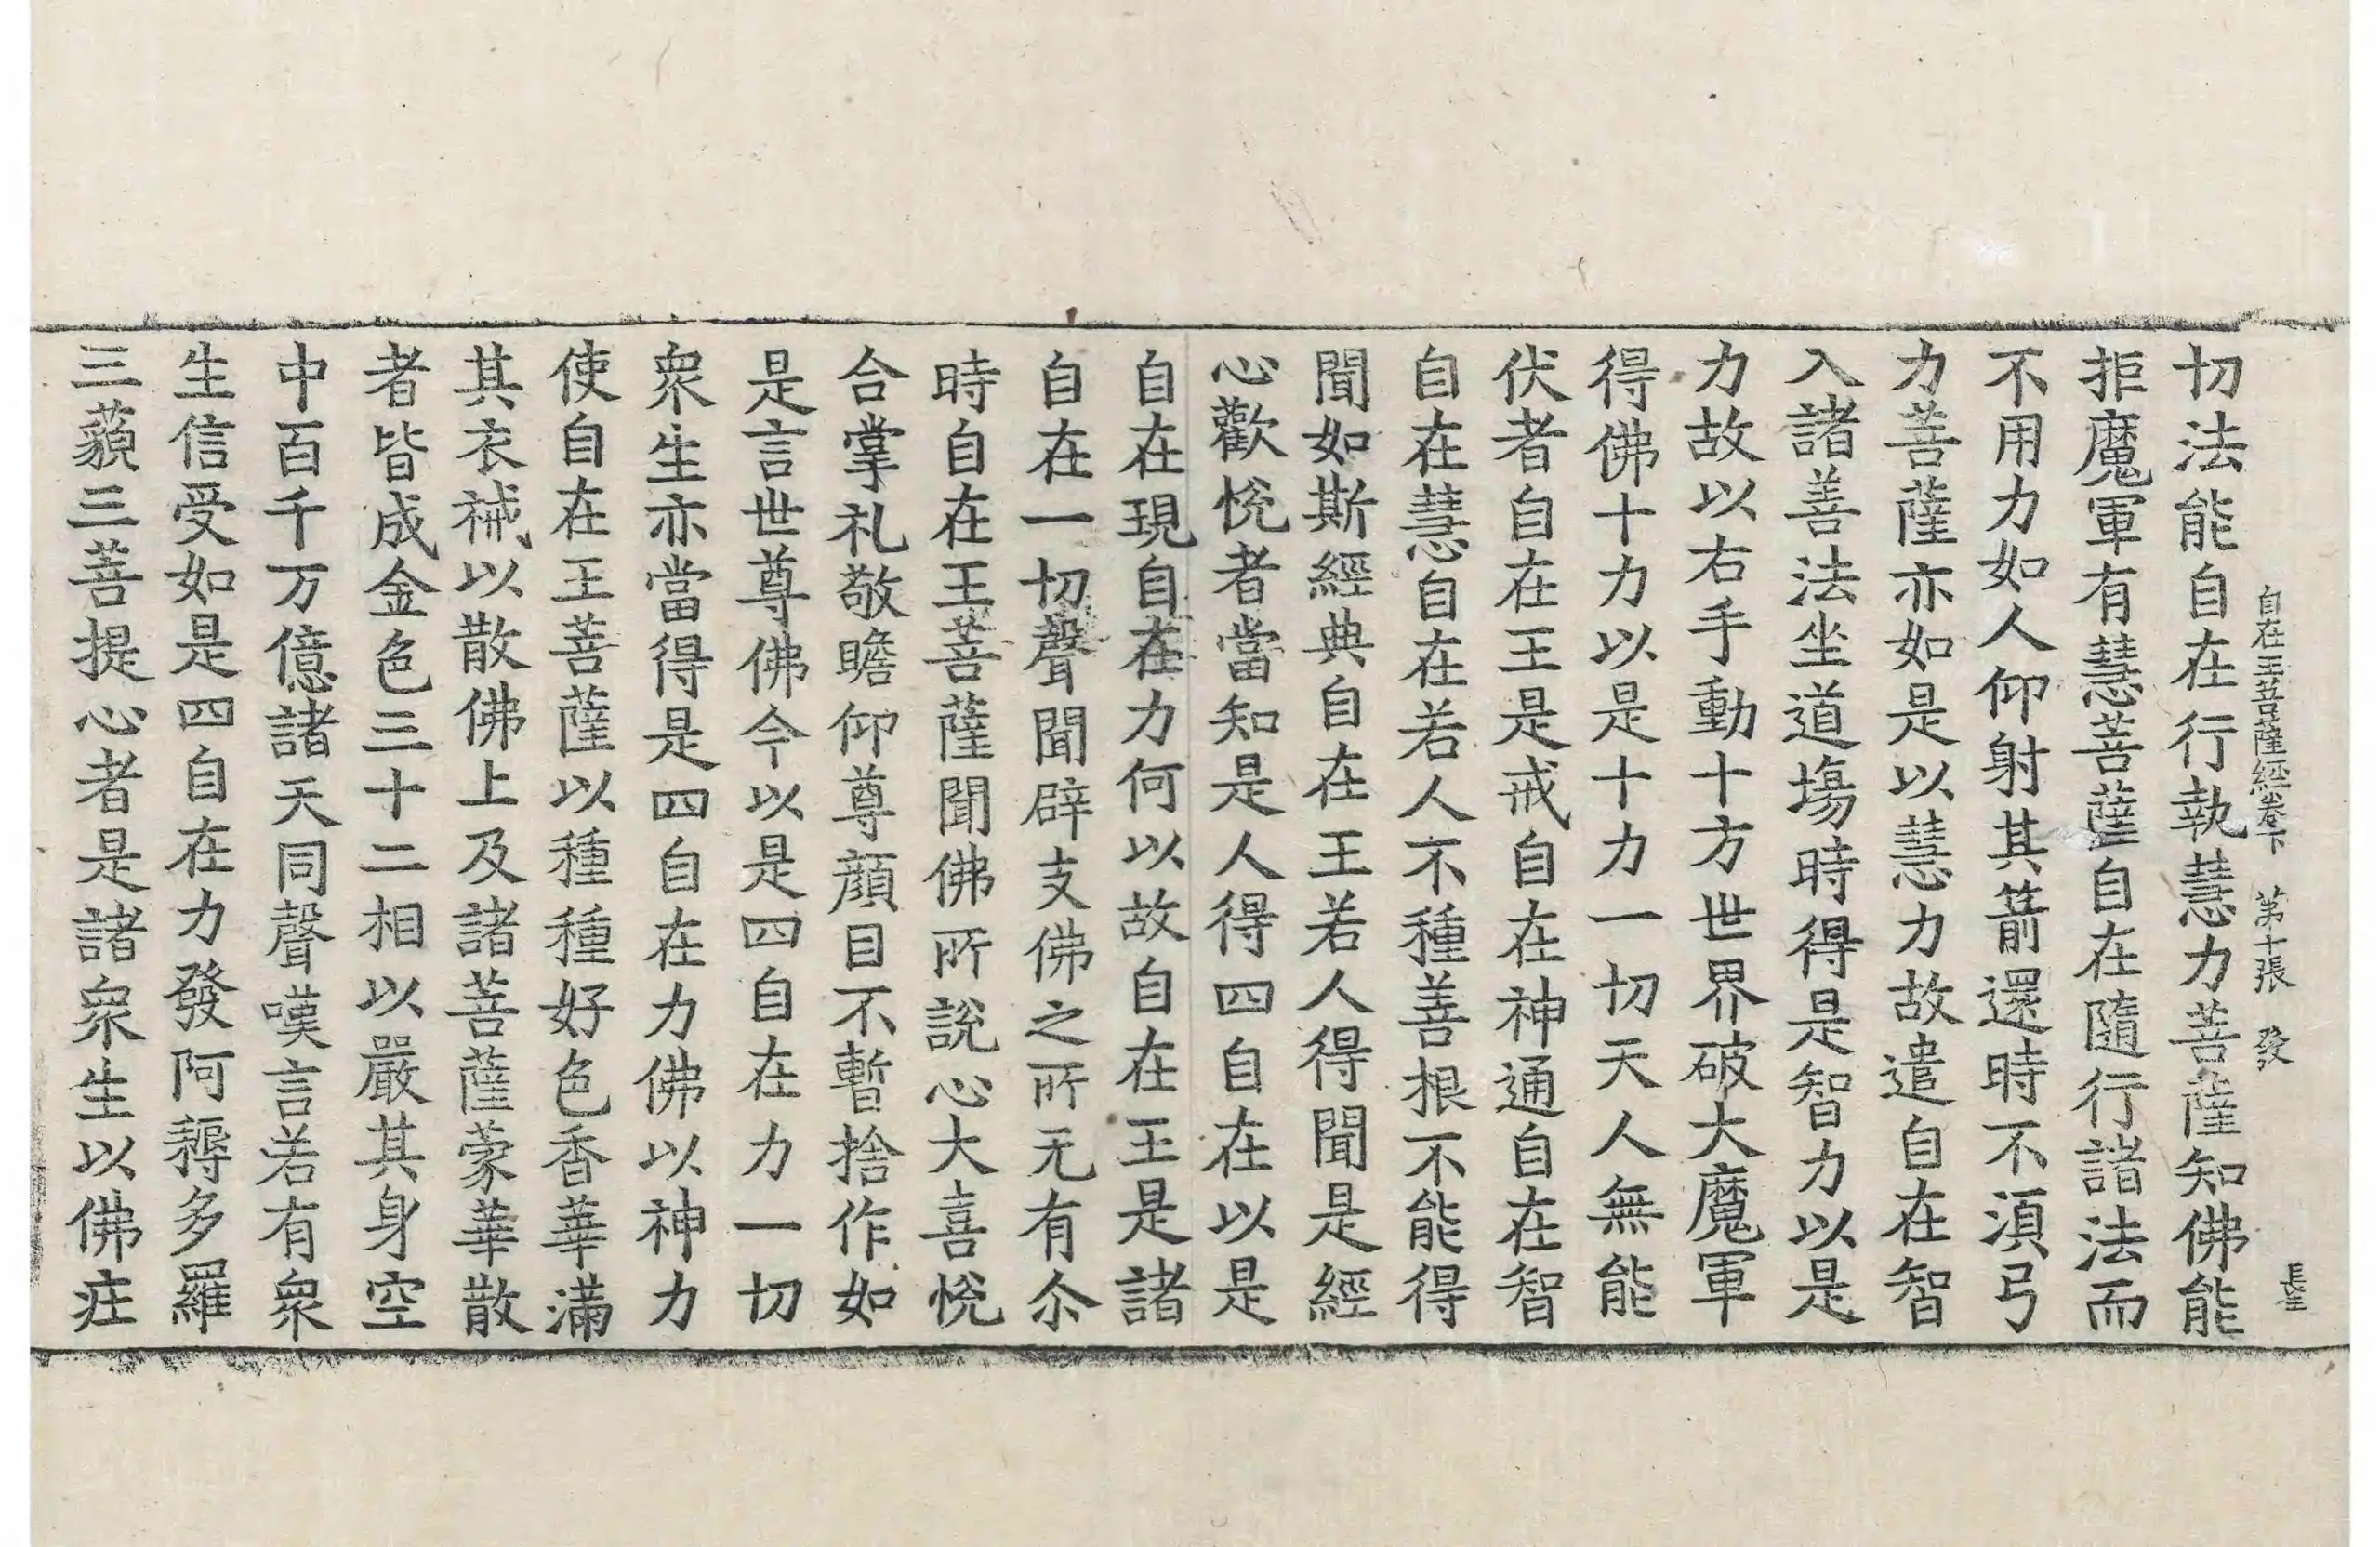 自在王菩薩經卷下 第十張 發
切法能自在行執慧力菩薩知佛能
拒魔軍有慧菩薩自在隨行諸法而
不用力如人仰射其箭還時不湏弓
力菩薩亦如是以慧力故遣自在智
入諸善法坐道塲時得是智力以是
力故以右手動十方世界破大魔軍
得佛十力以是十力一切天人無能
伏者自在王是戒自在神通自在智
自在慧自在若人不種善根不能得
聞如斯經典自在王若人得聞是經
心歡悅者當知是人得四自在以是
自在現自在力何以故自在王是諸
自在一切聲聞辟支佛之所无有尒
時自在王菩薩聞佛所說心大喜悅
合掌礼敬瞻仰尊顔目不暫捨作如
是言世尊佛今以是四自在力一切
衆生亦當得是四自在力佛以神力
使自在王菩薩以種種好色香華滿
其衣裓以散佛上及諸菩薩蒙華散
者皆成金色三十二相以嚴其身空
中百千万億諸天同聲嘆言若有衆
生信受如是四自在力發阿耨多羅
三藐三菩提心者是諸衆生以佛疰